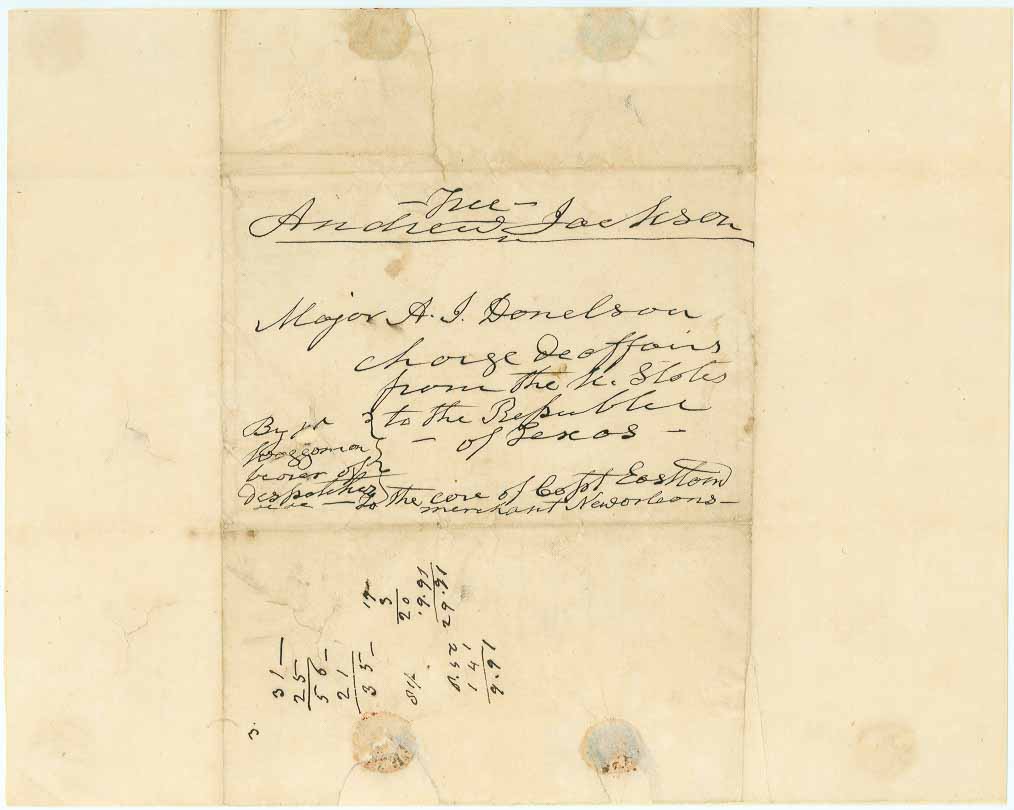 – Free –
Andrew Jackson
Major A. J. Donelson
charge deaffairs
from the U. States
to the Republic
– of Texas –
By Mr
Waggoman
bearer of
despatches
to the care of Capt Eastland
merchant New orleans –
31 –
25
56 –
21
35 –
19
3
20
9.91
29.91
8.52
141
9.91
3.